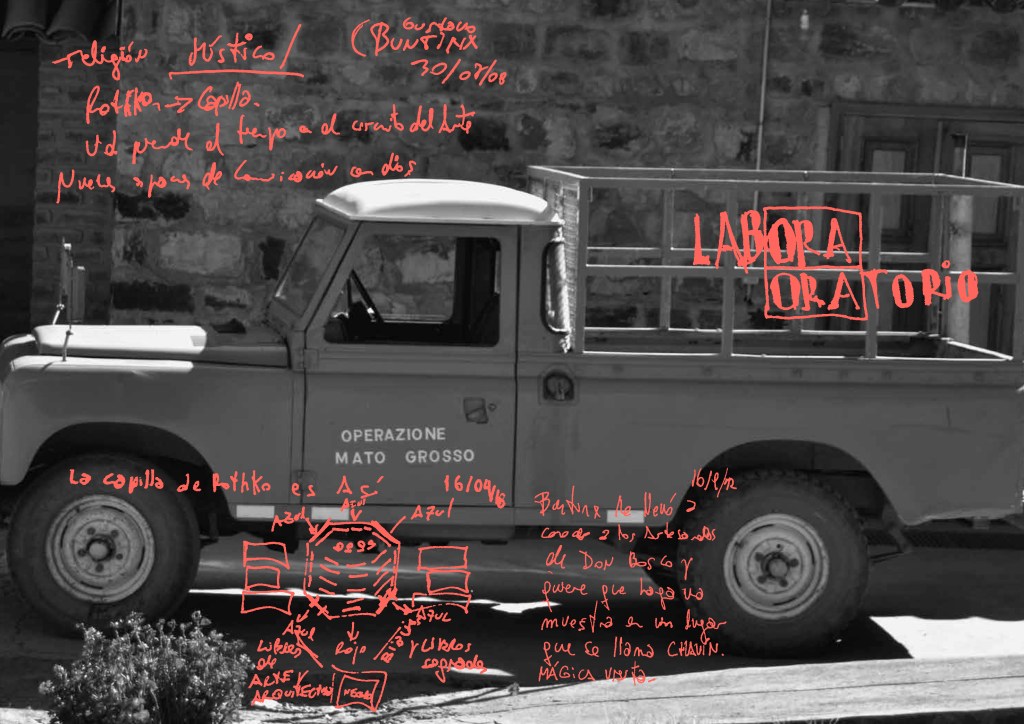 religión Místico/
(Gustavo
BUNTINX
30/07/08
Rothko → Capilla.
el tiempo el circuito del Arte
Nuevas de comunicación con dios
LABORA
ORATORIO
OPERAZIONE
MATO GROSSO
La capilla de Rothko es Así
16/04/
Azul
Azul
Azul
Azul
Rojo
Azul
Libros
de
ARTE Y
ARQUITECTURA
NEGRO
y Libros
sagrados
Buntinx me llevó a
conocer a los Artesanos
de Don Bosco y
quiere que haga una
muestra en un lugar
que se llama CHAVÍN.
MÁGICA visita.